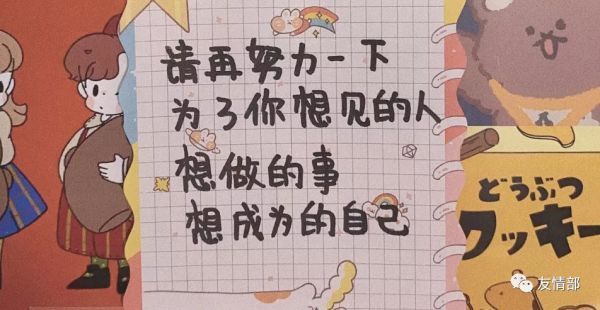 请再努力一下
为了你想见的人
想做的事
想成为的自己
どうぶつ
クッキー
友情部